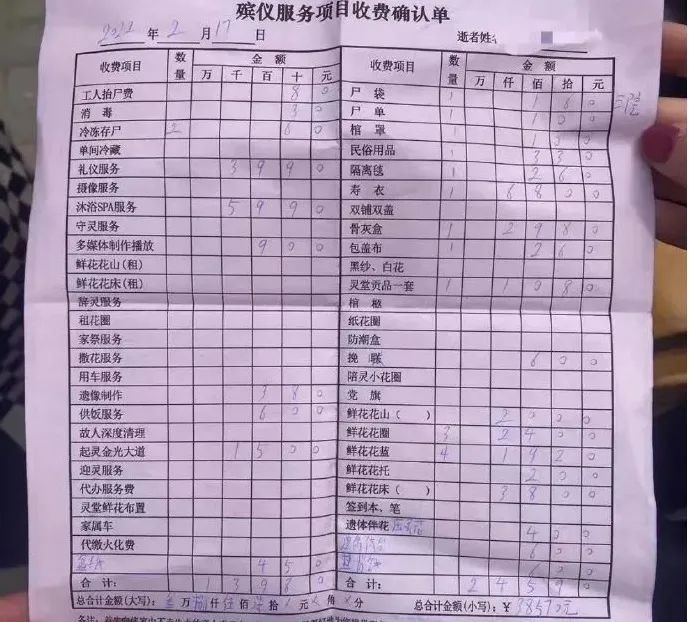 殡仪服务项目收费确认单
2022 年 2 月 17 日 逝者姓
收费项目 数量 金额 收费项目 数量 金额
万 千 百 十 元 万 仟 佰 拾 元
工人抬尸费 8 0 尸袋 1 1 6 0
消毒 3 0 尸单 1 1 0 0
冷冻存尸 2 6 0 棺罩 1 1 0 0
单间冷藏 民俗用品 1 3 3 0
礼仪服务 3 9 9 0 隔离毯 1 2 6 0
摄像服务 寿衣 1 6 8 0 0
沐浴SPA服务 5 9 9 0 双铺双盖
守灵服务 骨灰盒 1 2 9 8 0
多媒体制作播放 9 0 0 包盖布 1 2 6 0
鲜花花山(租) 黑纱、白花
鲜花花床(租) 灵堂贡品一套 1 1 0 8 0
辞灵服务 棺柩
租花圈 纸花圈
家祭服务 防潮盒
撒花服务 挽联 6 0 0
用车服务 陪灵小花圈
遗像制作 3 8 0 党旗
供饭服务 6 0 0 鲜花花山( ) 2 0 0 0
故人深度清理 鲜花花圈 3 2 4 0 0
起灵金光大道 1 5 0 0 鲜花花蓝 4 1 9 2 0
迎灵服务 鲜花花托 2 0 0
代办服务费 鲜花花床( ) 3 8 0 0
灵堂鲜花布置 签到本、笔
家属车 遗体伴花 4 0 0
代缴火化费 6 0 0
4 5 0 6 0 0
合计: 1 3 9 8 0 合计: 2 4 5 9 0
总合计金额(大写): 叁万捌仟伍佰柒拾 元 角 分 总合计金额(小写): ¥ 38570元